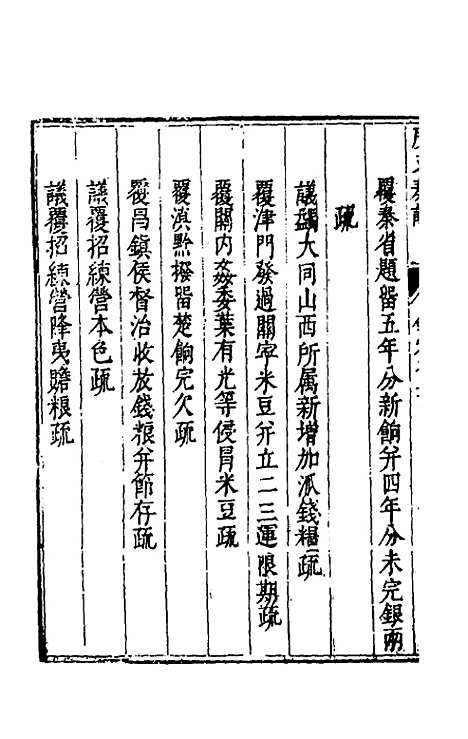 覆秦省題留五年分新餉并四年分未完銀兩
疏
議蠲大同山西所属新增加派錢糧疏
覆津門發過關寧米豆并立二三運限期疏
覆關内姦委葉有光等侵冒米豆疏
覆滇黔撥留楚餉完欠疏
覆昌鎮侯督治收放錢粮并節存疏
議覆招練營本色疏
議覆招練營降夷贍粮疏